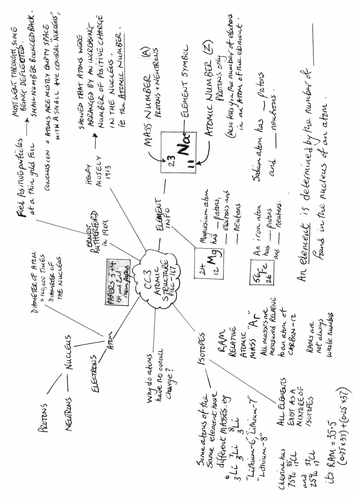 MOST WENT THROUGH, SOME
BEING DEFLECTED.
SMALL NUMBER BOUNCED BACK.
CONCLUSION → ATOMS ARE MOSTLY EMPTY SPACE
WITH A SMALL +VE CENTRAL NUCLEUS.
FIRED POSITIVE PARTICLES
at a thin gold foil
ERNEST
RUTHERFORD
in 1909
SHOWED THAT ATOMS WERE
ARRANGED BY AN INCREASING
NUMBER OF POSITIVE CHARGE
IN THE NUCLEUS.
ie the ATOMIC NUMBER.
HENRY
MOSELY
1913
MASS NUMBER (A)
PROTONS + NEUTRONS
23
11
Na
ELEMENT SYMBOL
ATOMIC NUMBER (Z)
PROTONS ONLY
(also tells you the number of electrons
in an atom of the element.
Sodium atom has __ protons
and __ neutrons.
An element is determined by the number of ______
found in the nucleus of an atom.
ELEMENT
INFO
Magnesium atom
has __ protons,
__ electrons and
__ neutrons
24
12 Mg
56
26 Fe
An iron atom
has __ protons
and __ neutrons
CC3
ATOMIC
STRUCTURE
PAPERS 3+4
DIAMETER OF ATOM
= 100,000 TIMES
DIAMETER OF
THE NUCLEUS
ATOM
NUCLEUS
PROTONS
NEUTRONS
ELECTRONS
Why do atoms
have no overall
charge?
ISOTOPES
RAM
RELATIVE
ATOMIC
MASS "Ar"
All masses are
measured RELATIVE
to an atom of
CARBON-12
RAMs are
not always
whole numbers
Some atoms of the
Same element have
different MASSES eg
6 3 Li 7 3 Li 8 3 Li
"Lithium-6", "Lithium-7"
"Lithium-8"
ALL ELEMENTS
EXIST AS A
MIXTURE OF
ISOTOPES
Chlorine has
75% 35 17 Cl
and 37
25% 17 Cl
its RAM = 35.5
(0.75×35)+(0.25×37)